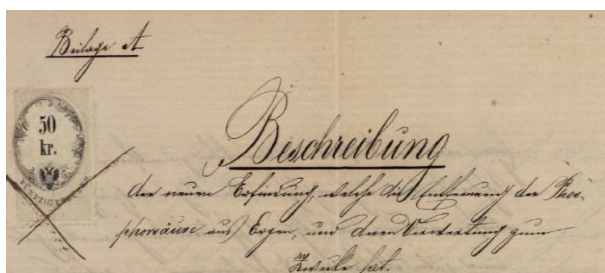 Beilage A
50
kr.
Beschreibung
der neuen Erfindung, welche die Entfernung der Phos-
phorsäure aus Erzen, und deren Verwertung zum
Zwecke hat.